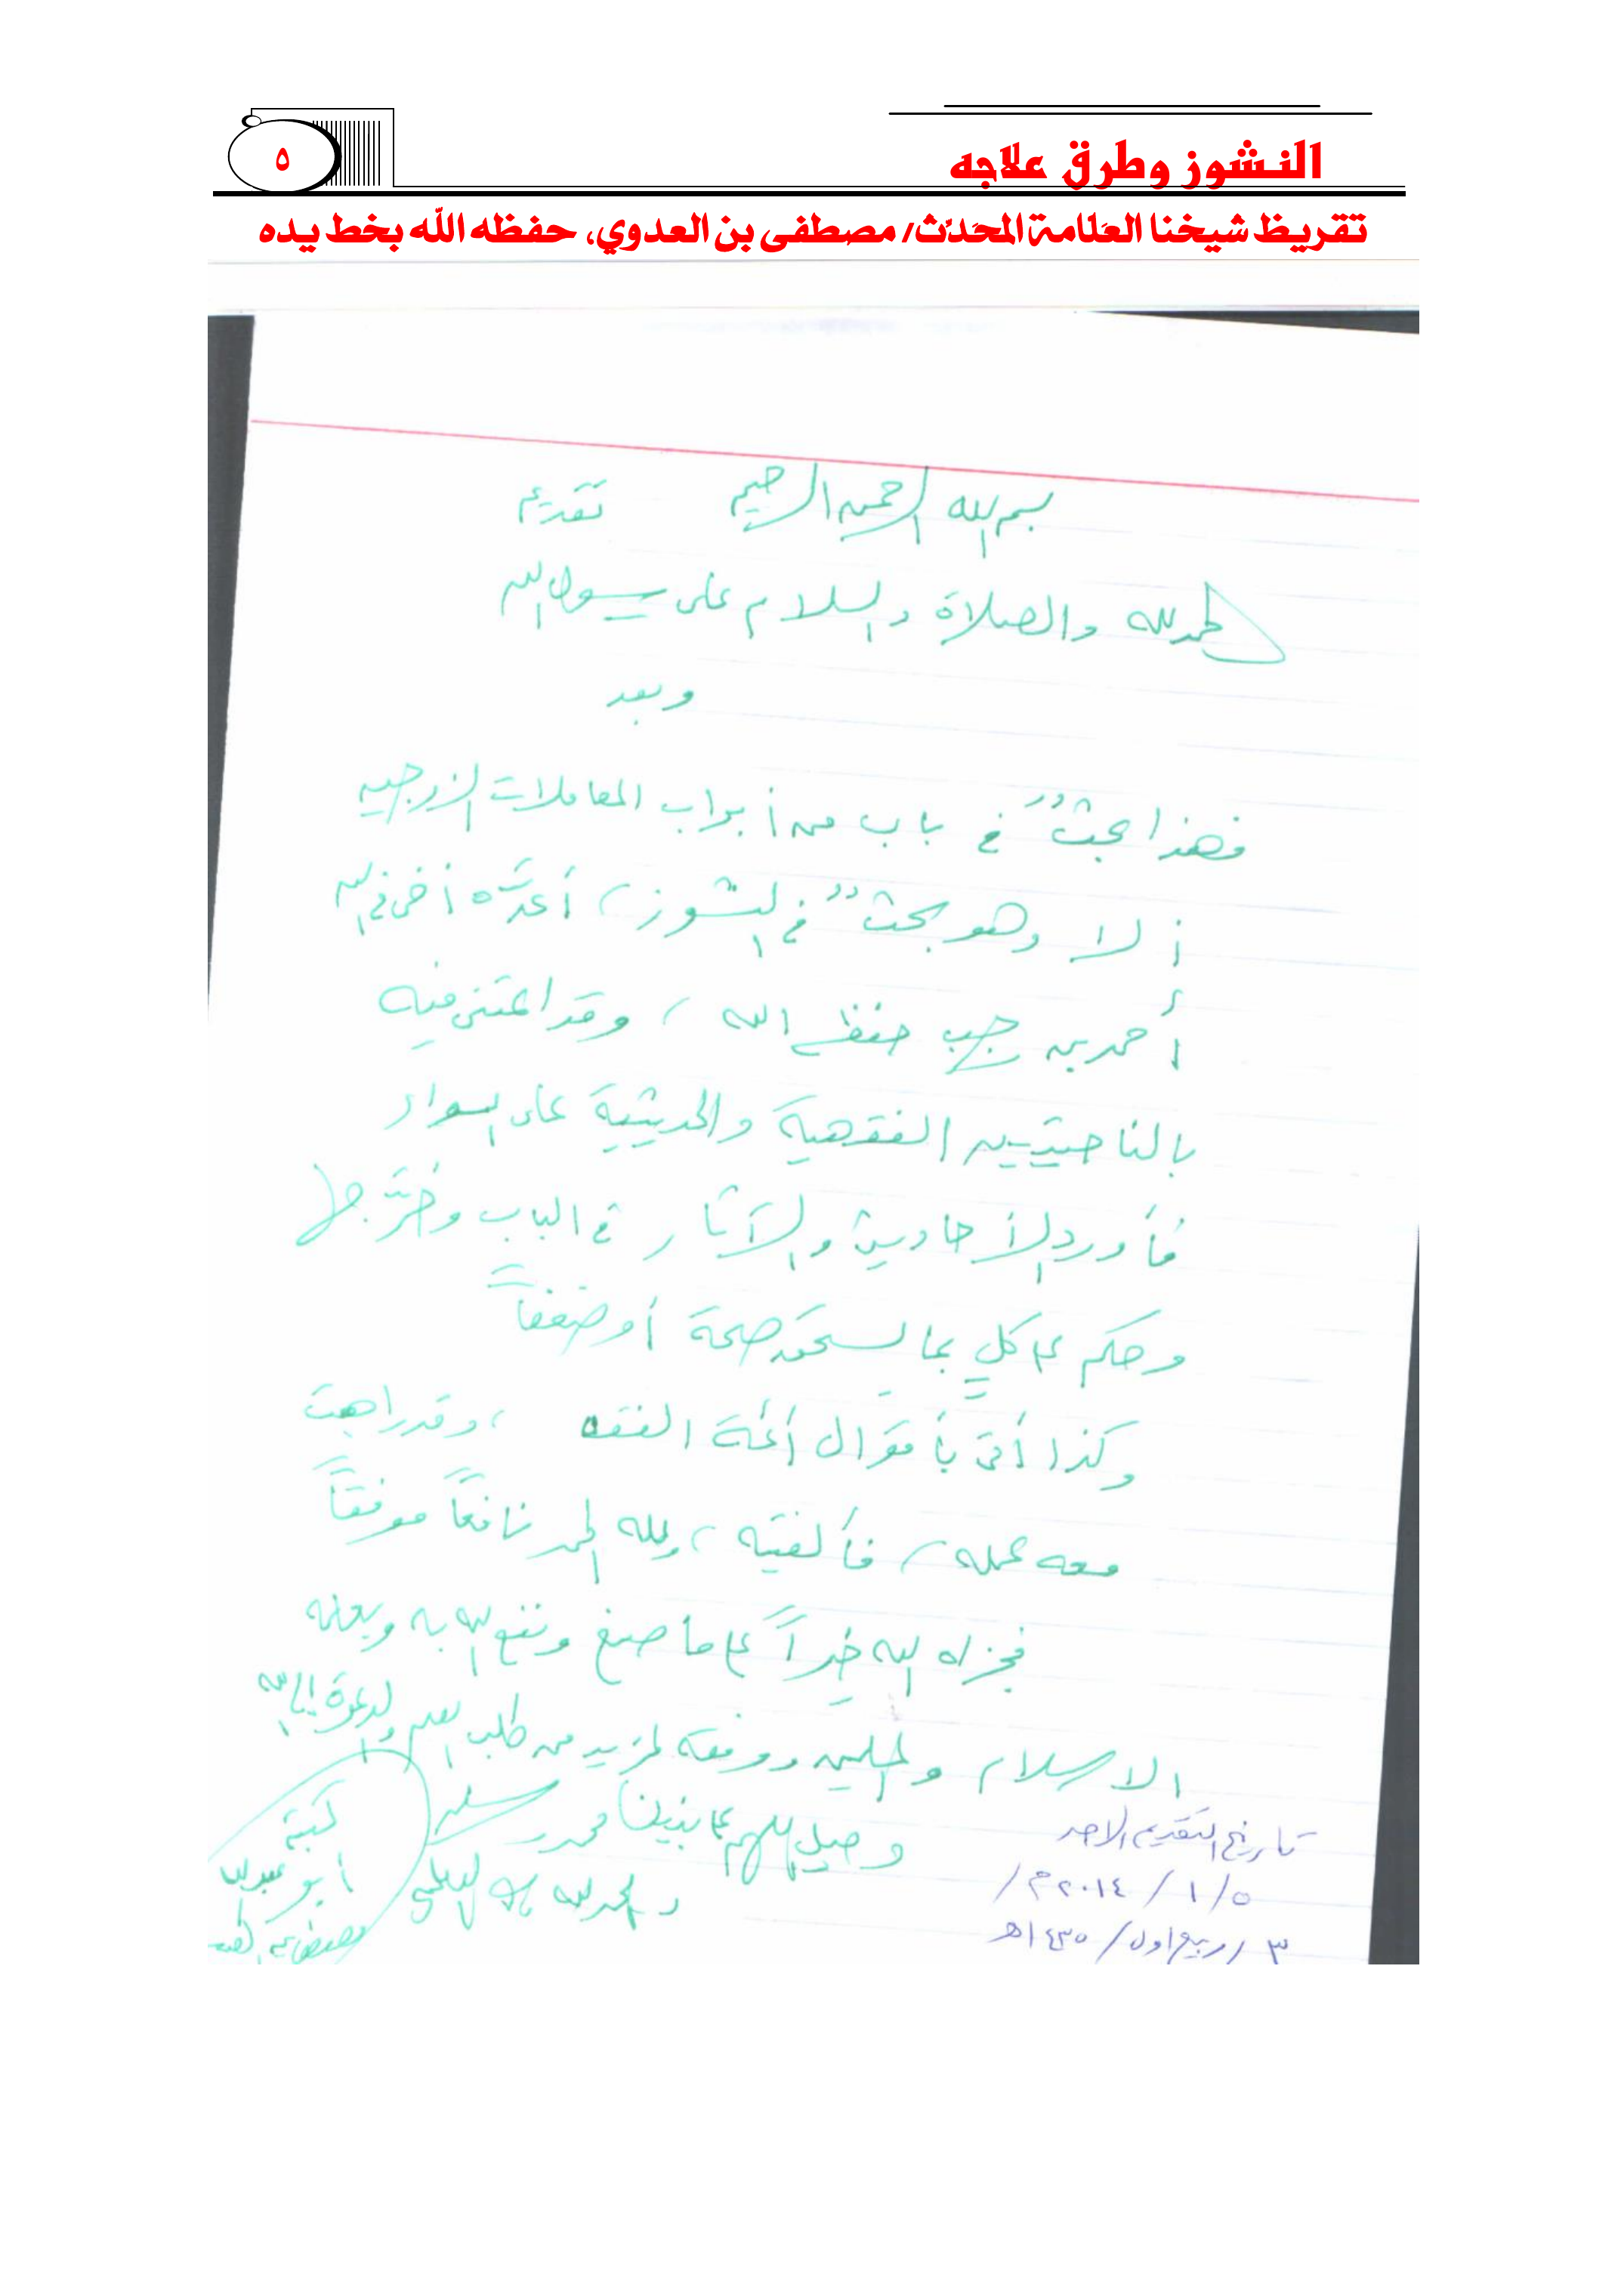 النشوز وطرق علاجه
٥
تقريظ شيخنا العلامة المحدّث/ مصطفى بن العدوي، حفظه الله بخط يده
بسم الله الرحمن الرحيم تقديم
الحمد لله والصلاة والسلام على رسول الله
وبعد
فهذا بحثٌ في باب من أبواب المعاملات الزوجيه
ألا وهو بحثٌ في النشوز، أعدَّه أخي في الله
أحمد بن رجب حفظه الله، وقد اعتنى فيه
بالناحيتين الفقهية والحديثية على السواء
فأورد الأحاديث والآثار في الباب وخرَّجها
وحكم على كلٍ بما يستحقه صحة أو ضعفاً
وكذا أتى بأقوال أئمة الفقه، وقد راجعت
معه عمله، فألفيته، ولله الحمد نافعاً موفقاً
فجزاه الله خيراً على ما صنع ونفع الله به وبعلمه
الاسلام والمسلمين ووفقه لمزيد من طلب العلم والدعوة إلى الله
وصلِّ اللهم على نبينا محمد وسلم
والحمد لله رب العالمين
كتبه
أبو عبد الله
مصطفى بن العدوي
تاريخ التقديم الاحد
٥/ ١ / ٢٠١٤م/
٣ / ربيع اول / ١٤٣٥هـ